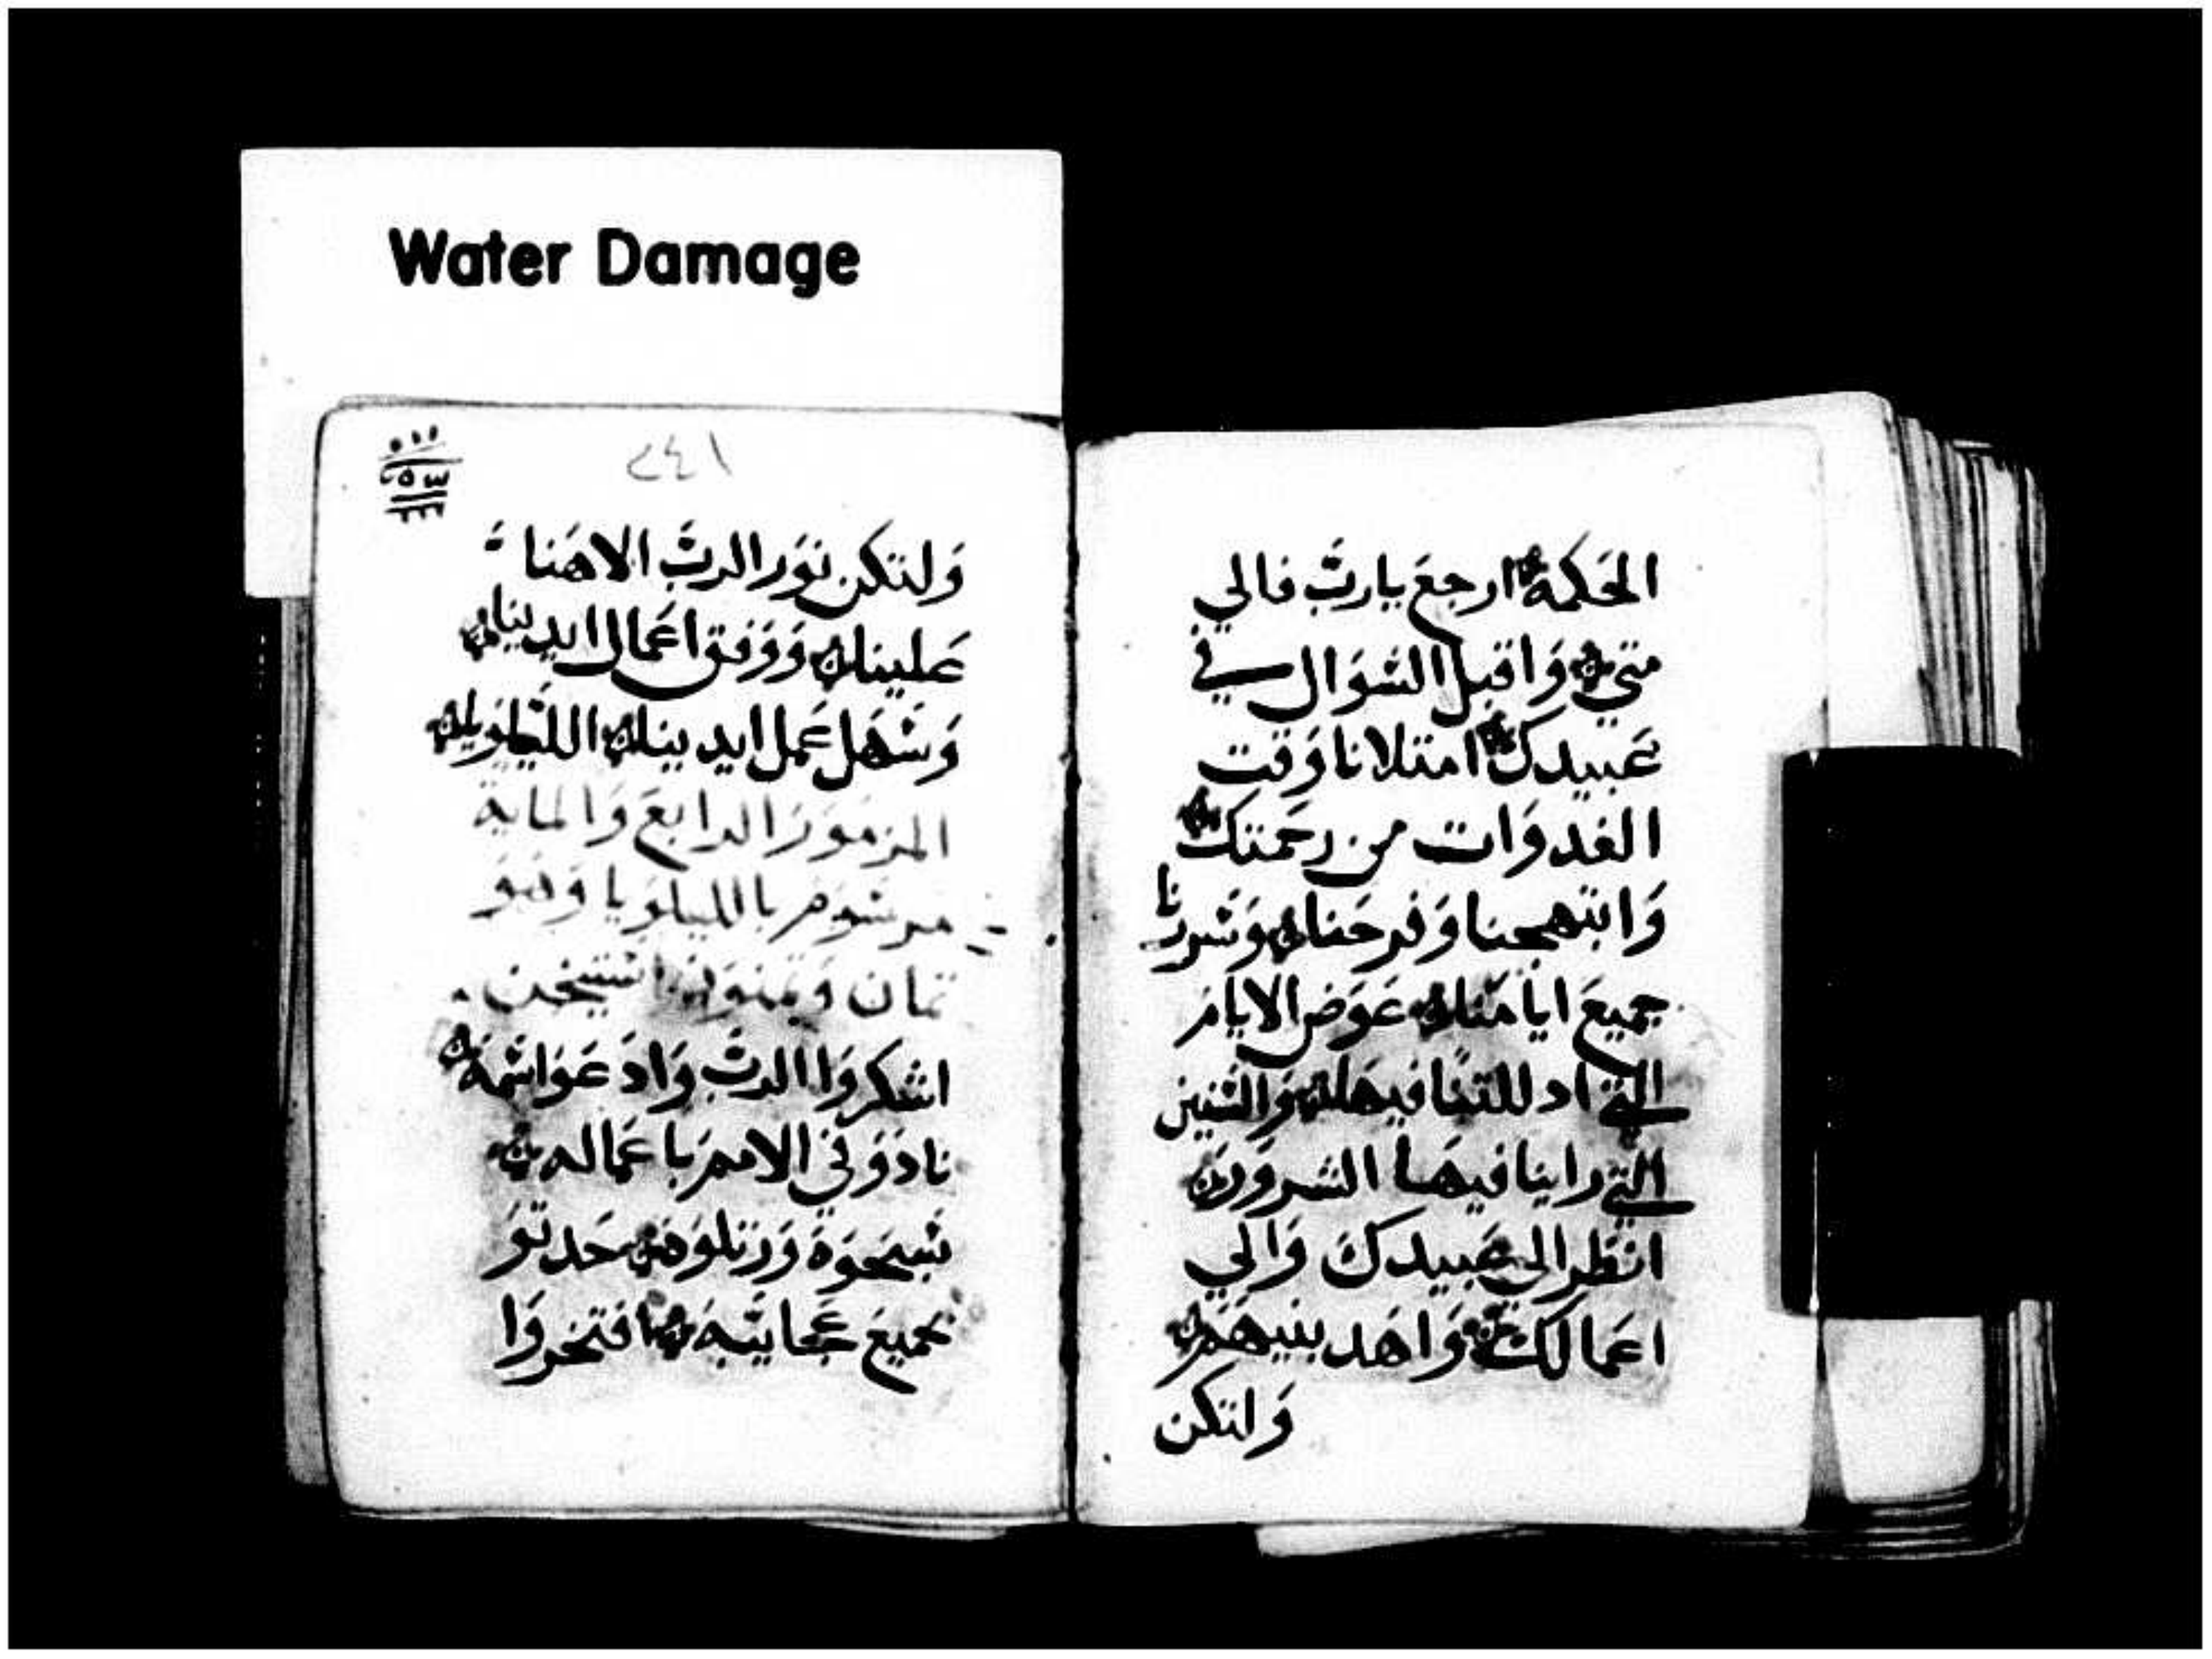 Water Damage
الحكمة ارجع يارب فالي
متي واقبل السوال في
عبيدك امتلانا وقت
الغدوات من رحمتك
وابتهجنا وفرحنا وسررنا
جميع ايامنا عوض الايام
التي اد للتنا فيها والسنين
التي راينا فيها الشرور
انظر الي عبيدك والي
اعمالك واهد بنيهم
ولتكن
٢٤١
ولتكن نور الرب الاهنا
علينا ووفق اعمال ايدينا
وسهل عمل ايدينا الليلويا
المزمور الرابع والماية
مرسوم بالليلويا وهو
تمان
اشكروا الرب وادعوا اسمه
نادو في الامم باعماله
سبحوه ورتلوه حدتو
بجميع عجايبه افتخروا